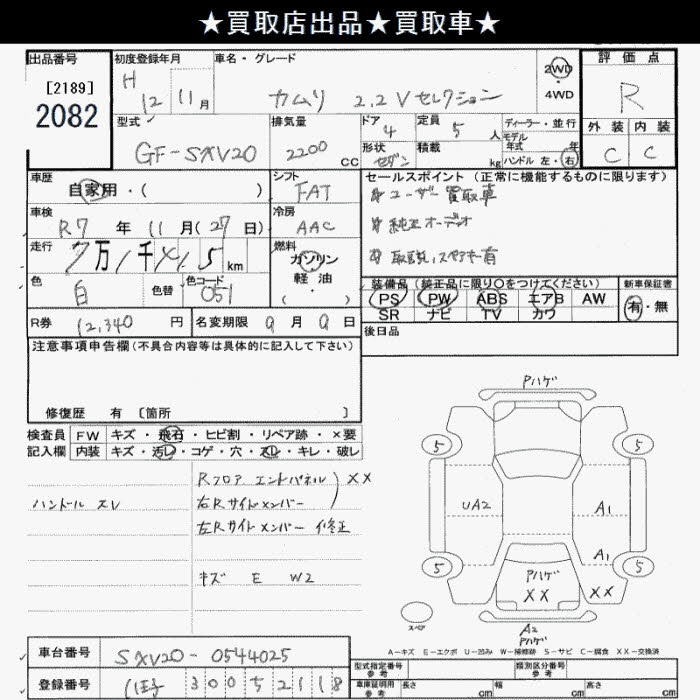 ★買取店出品★買取車★
出品番号
[2189]
2082
初度登録年月
H 12 11月
車名・グレード
カムリ 2.2 V セレクション
2WD
4WD
評価点
R
外装 内装
C C
型式
GF-SXV20
排気量
2200 cc
ドア 4
形状 セダン
定員 5 人
積載 kg
ディーラー・並行
モデル
年式 年
ハンドル 左・右
車歴
自家用・( )
シフト
FAT
セールスポイント(正常に機能するものに限ります)
ユーザー買取車
純正オーデオ
取説,スペアキー有
車検
R7 年 11 月(27 日)
冷房
AAC
走行
7万1千 5 km
燃料
ガソリン
軽油
( ・ )
色
白
色替
色コード
051
装備品(純正品に限り○をつけてください)
PS PW ABS エアB AW
SR ナビ TV カワ
新車保証書
有・無
R券 12,340 円
名変期限 9 月 9 日
後日品
注意事項申告欄(不具合内容等は具体的に記入して下さい)
修復歴 有 [箇所 ]
検査員
記入欄
FW キズ・飛石・ヒビ割・リペア跡・×要
内装 キズ・汚レ・コゲ・穴・スレ・キレ・破レ
ハンドル スレ
Rフロア エンドパネル XX
右Rサイドメンバー
左Rサイドメンバー 修正
キズ E W2
Pハゲ
5 5
UA2
A1
A1
5 5
Pハゲ
XX
XX
スペア
A2
Pハゲ
A-キズ E-エクボ U-凹み W-補修跡 S-サビ C-腐食 XX-交換済
車台番号
SXV20-0544025
登録番号
300 52118
型式指定番号
参考
類別区分番号
参考
車庫証明用
参考
長さ cm
幅 cm
高さ cm